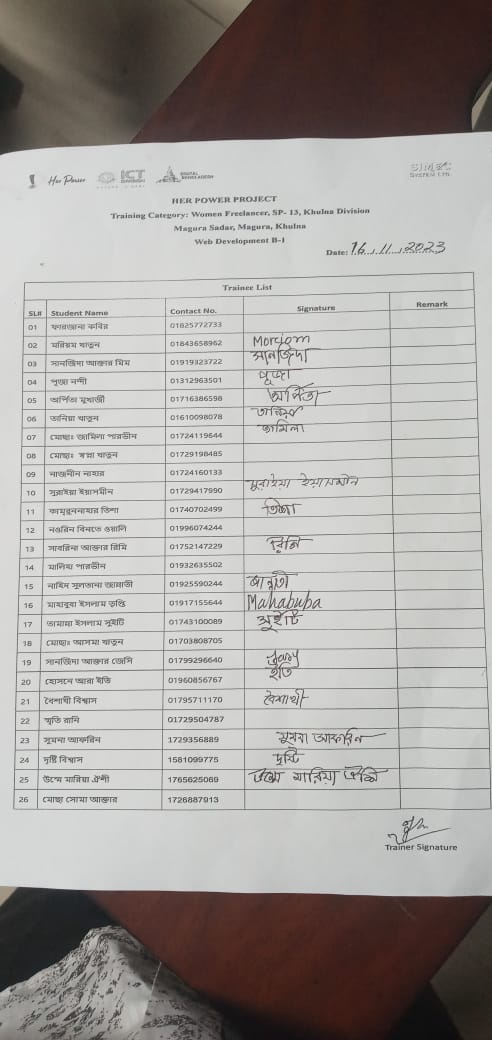 Her Power
ICT
DIVISION
DIGITAL
BANGLADESH
SIMEC
SYSTEM LTD.
HER POWER PROJECT
Training Category: Women Freelancer, SP- 13, Khulna Division
Magura Sadar, Magura, Khulna
Web Development B-1
Date: 16.11.2023
Trainee List
SL# Student Name Contact No. Signature Remark
01 ফারজানা কবির 01825772733
02 মরিয়ম খাতুন 01843658962 Moriom
03 সানজিদা আক্তার মিম 01919323722 সানজিদা
04 পুজা নন্দী 01312963501 পূজা
05 অর্পিতা মুখার্জী 01716386598 অর্পিতা
06 তানিয়া খাতুন 01610098078 তানিয়া
07 মোছাঃ জামিলা পারভীন 01724119644 জামিলা
08 মোছাঃ স্বপ্না খাতুন 01729198485
09 নাজমীন নাহার 01724160133
10 সুরাইয়া ইয়াসমীন 01729417990 সুরাইয়া ইয়াসমীন
11 কামরুননাহার তিশা 01740702499 তিশা
12 নওরিন বিনতে ওয়ালি 01996074244
13 সাবরিনা আক্তার রিমি 01752147229 রিমি
14 মালিহা পারভীন 01932635502
15 নাহিদ সুলতানা জান্নাতী 01925590244 জান্নাতী
16 মাহাবুবা ইসলাম তৃপ্তি 01917155644 Mahabuba
17 তামান্না ইসলাম সুইটি 01743100089 সুইটি
18 মোছাঃ আসমা খাতুন 01703808705
19 সানজিদা আক্তার জেসি 01799296640
20 হোসনে আরা ইতি 01960856767 ইতি
21 বৈশাখী বিশ্বাস 01795711170 বৈশাখী
22 স্মৃতি রানি 01729504787
23 সুমনা আফরিন 1729356889 সুমনা আফরিন
24 দৃষ্টি বিশ্বাস 1581099775 দৃষ্টি
25 উম্মে মারিয়া ঐশী 1765625069 উম্মে মারিয়া ঐশী
26 মোছা সোমা আক্তার 1726887913
Trainer Signature